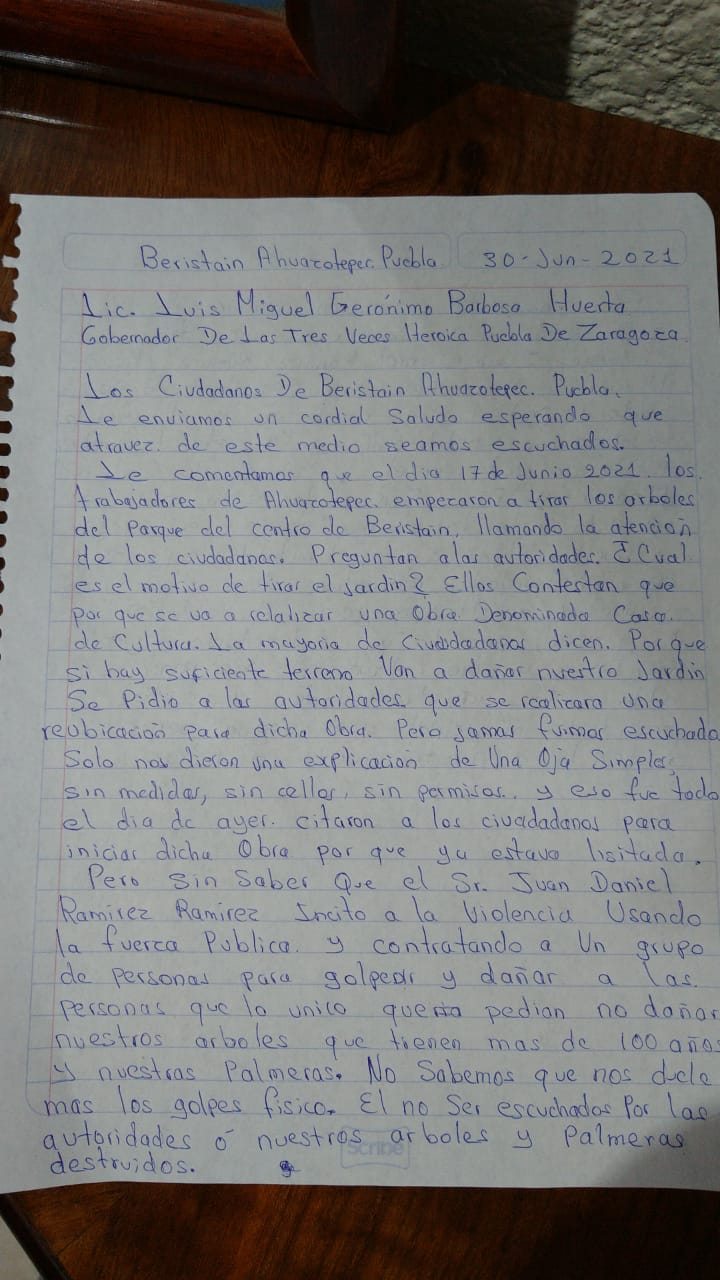 Beristain Ahuazotepec. Puebla 30-Jun-2021
Lic. Luis Miguel Gerónimo Barbosa Huerta
Gobernador De Las Tres Veces Heroica Puebla De Zaragoza
Los Ciudadanos De Beristain Ahuazotepec. Puebla.
Le enviamos un cordial Saludo esperando que
atravez. de este medio seamos escuchados.
Le comentamos que el dia 17 de Junio 2021. los
trabajadores de Ahuazotepec. empezaron a tirar los arboles
del Parque del centro de Beristain, llamando la atención
de los ciudadanos. Preguntan a las autoridades. ¿Cual
es el motivo de tirar el Jardin? Ellos Contestan que
por que se va a relalizar una Obra Denominada Casa.
de Cultura. La mayoria de Ciudadanos dicen. Por que
si hay suficiente terreno Van a dañar nuestro Jardin
Se Pidio a las autoridades que se realizara una
reubicación para dicha Obra. Pero jamas fuimos escuchado
Solo nos dieron una explicación de Una Oja Simple,
sin medidas, sin cellos, sin permisos. y eso fue todo
el dia de ayer. citaron a los ciudadanos para
iniciar dicha Obra por que ya estava lisitada.
Pero Sin Saber Que el Sr. Juan Daniel
Ramirez Ramirez Incito a la Violencia Usando
la fuerza Publica. y contratando a Un grupo
de personas para golpear y dañar a las.
personas que lo unico que pedian no dañar
nuestros arboles que tienen mas de 100 años
y nuestras Palmeras. No Sabemos que nos duele
mas los golpes fisico. El no Ser escuchados Por las
autoridades ó nuestros arboles y Palmeras
destruidos.
Scribe